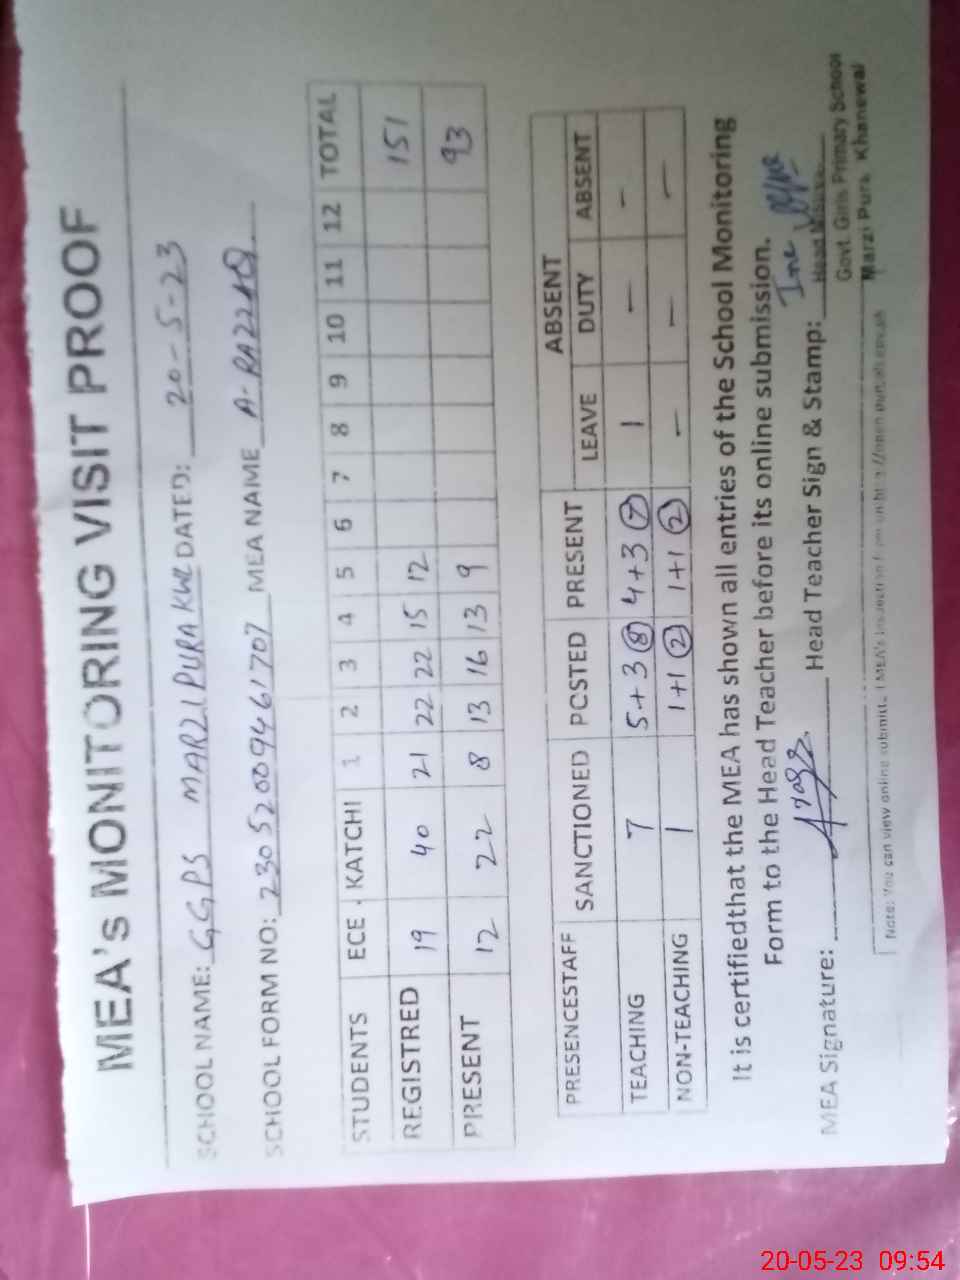 MEA's MONITORING VISIT PROOF
SCHOOL NAME: GGPS MARZI PURA KWL DATED: 20-5-23
SCHOOL FORM NO: 23052009461707 MEA NAME A-RAZZAQ
STUDENTS ECE . KATCHI 1 2 3 4 5 6 7 8 9 10 11 12 TOTAL
REGISTRED 19 40 21 22 22 15 12 151
PRESENT 12 22 8 13 16 13 9 93
ABSENT
PRESENCESTAFF SANCTIONED POSTED PRESENT LEAVE DUTY ABSENT
TEACHING 7 5+3 (8) 4+3 (7) 1 - -
NON-TEACHING 1 1+1 (2) 1+1 (2) - - -
It is certifiedthat the MEA has shown all entries of the School Monitoring
Form to the Head Teacher before its online submission.
MEA Signature: Head Teacher Sign & Stamp:
Head Mistress
Govt. Girls Primary School
Marzi Pura Khanewal
Note: You can view online submitted MEA's Inspection Form on
20-05-23 09:54